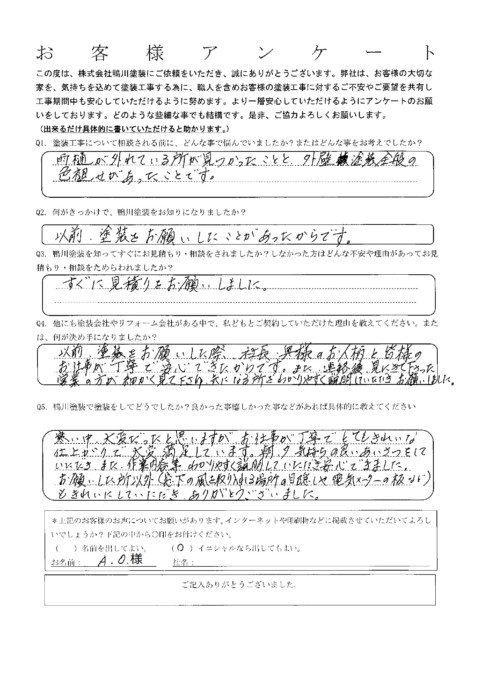 お客様アンケート
この度は、株式会社鴨川塗装にご依頼をいただき、誠にありがとうございます。弊社は、お客様の大切な
家を、気持ちを込めて塗装工事する為に、職人を含めお客様の塗装工事に対するご不安やご要望を共有し
工事期間中も安心していただけるように努めます。より一層安心していただけるようにアンケートのお願
いをしております。どのような些細な事でも結構です。是非、ご協力よろしくお願いします。
(出来るだけ具体的に書いていただけると助かります。)
Q1. 塗装工事について相談される前に、どんな事で悩んでいましたか？またはどんな事をお考えでしたか？
雨樋が外れている所が見つかったことと、外壁塗装全般の
色褪せがあったことです。
Q2. 何がきっかけで、鴨川塗装をお知りになりましたか？
以前、塗装をお願いしたことがあったからです。
Q3. 鴨川塗装を知ってすぐにお見積もり・相談をされましたか？しなかった方はどんな不安や理由があってお見
積もり・相談をためらわれましたか？
すぐに見積りをお願いしました。
Q4. 他にも塗装会社やリフォーム会社がある中で、私どもとご契約していただけた理由を教えてください。また
は、何が決め手になりましたか？
以前、塗装をお願いした際、社長、奥様のお人柄と皆様の
お仕事が丁寧で安心できたからです。また、連絡後、見にきて下さった
営業の方が細かく見て下さり、気になる所をわかりやすく説明していただきお願いしました。
Q5. 鴨川塗装で塗装をしてどうでしたか？良かった事嬉しかった事などがあれば具体的に教えてください
寒い中、大変だったと思いますが、お仕事が丁寧で、とてもきれいな
仕上がりで大変満足しています。朝、夕気持ちの良いあいさつをして
いただき、また、作業内容等わかりやすく説明していただき安心できました。
お願いした所以外(床下の風を取り入れる場所の目隠しや電気メーターの板など)
もきれいにしていただきありがとうございました。
※上記のお客様のお声についてお願いがあります。インターネットや印刷物などに掲載させていただいてよろし
いでしょうか？下記の中から○印をお付けください。
( ) 名前を出してよい。 (○) イニシャルなら出してもよい。
お名前： A.O.様 社名：
ご記入ありがとうございました